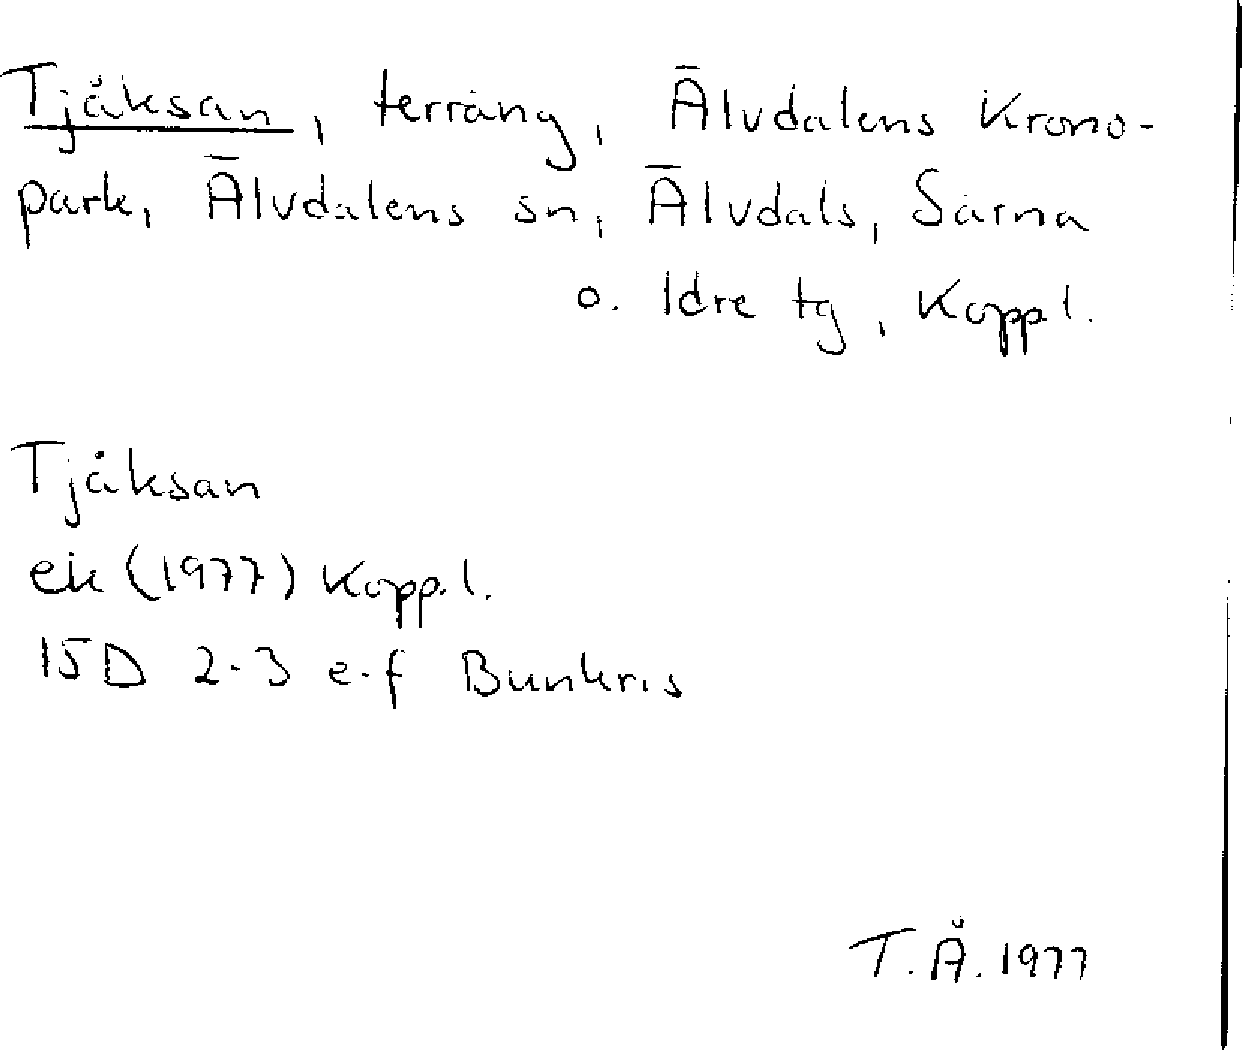 Tjåksan, terräng, Älvdalens Krono-
park, Älvdalens sn, Älvdals, Särna
o. Idre tg, Kopp.l.
Tjåksan
ek (1977) Kopp.l.
15D 2-3 e-f Bunkris
T.Å. 1977